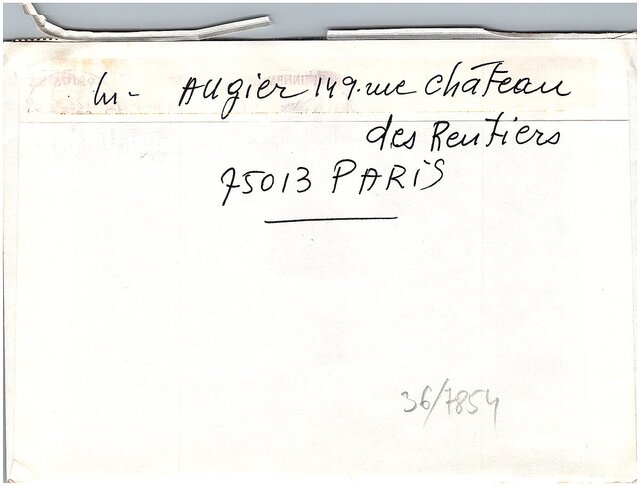 AUgier 149.rue château
des Rentiers
75013 PARIS
36/7854